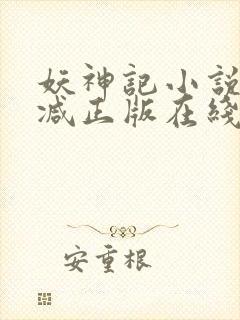 妖神記小說
减正版在綫
安重根